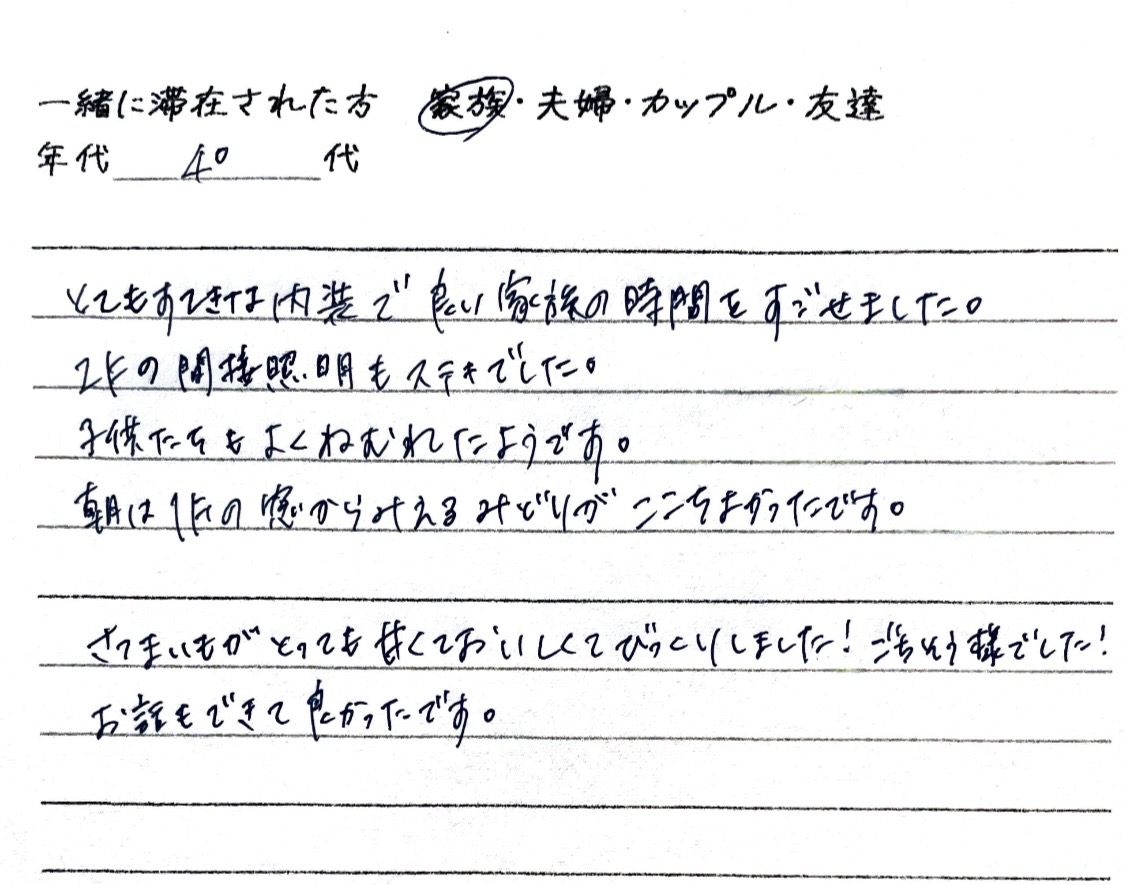 一緒に滞在された方 家族・夫婦・カップル・友達
年代 40 代
とてもすてきな内装で良い家族の時間をすごせました。
2Fの間接照明もステキでした。
子供たちもよくねむれたようです。
朝は1Fの窓からみえるみどりがここちよかったです。
さつまいもがとっても甘くておいしくてびっくりしました!ごちそう様でした!
お話もできて良かったです。